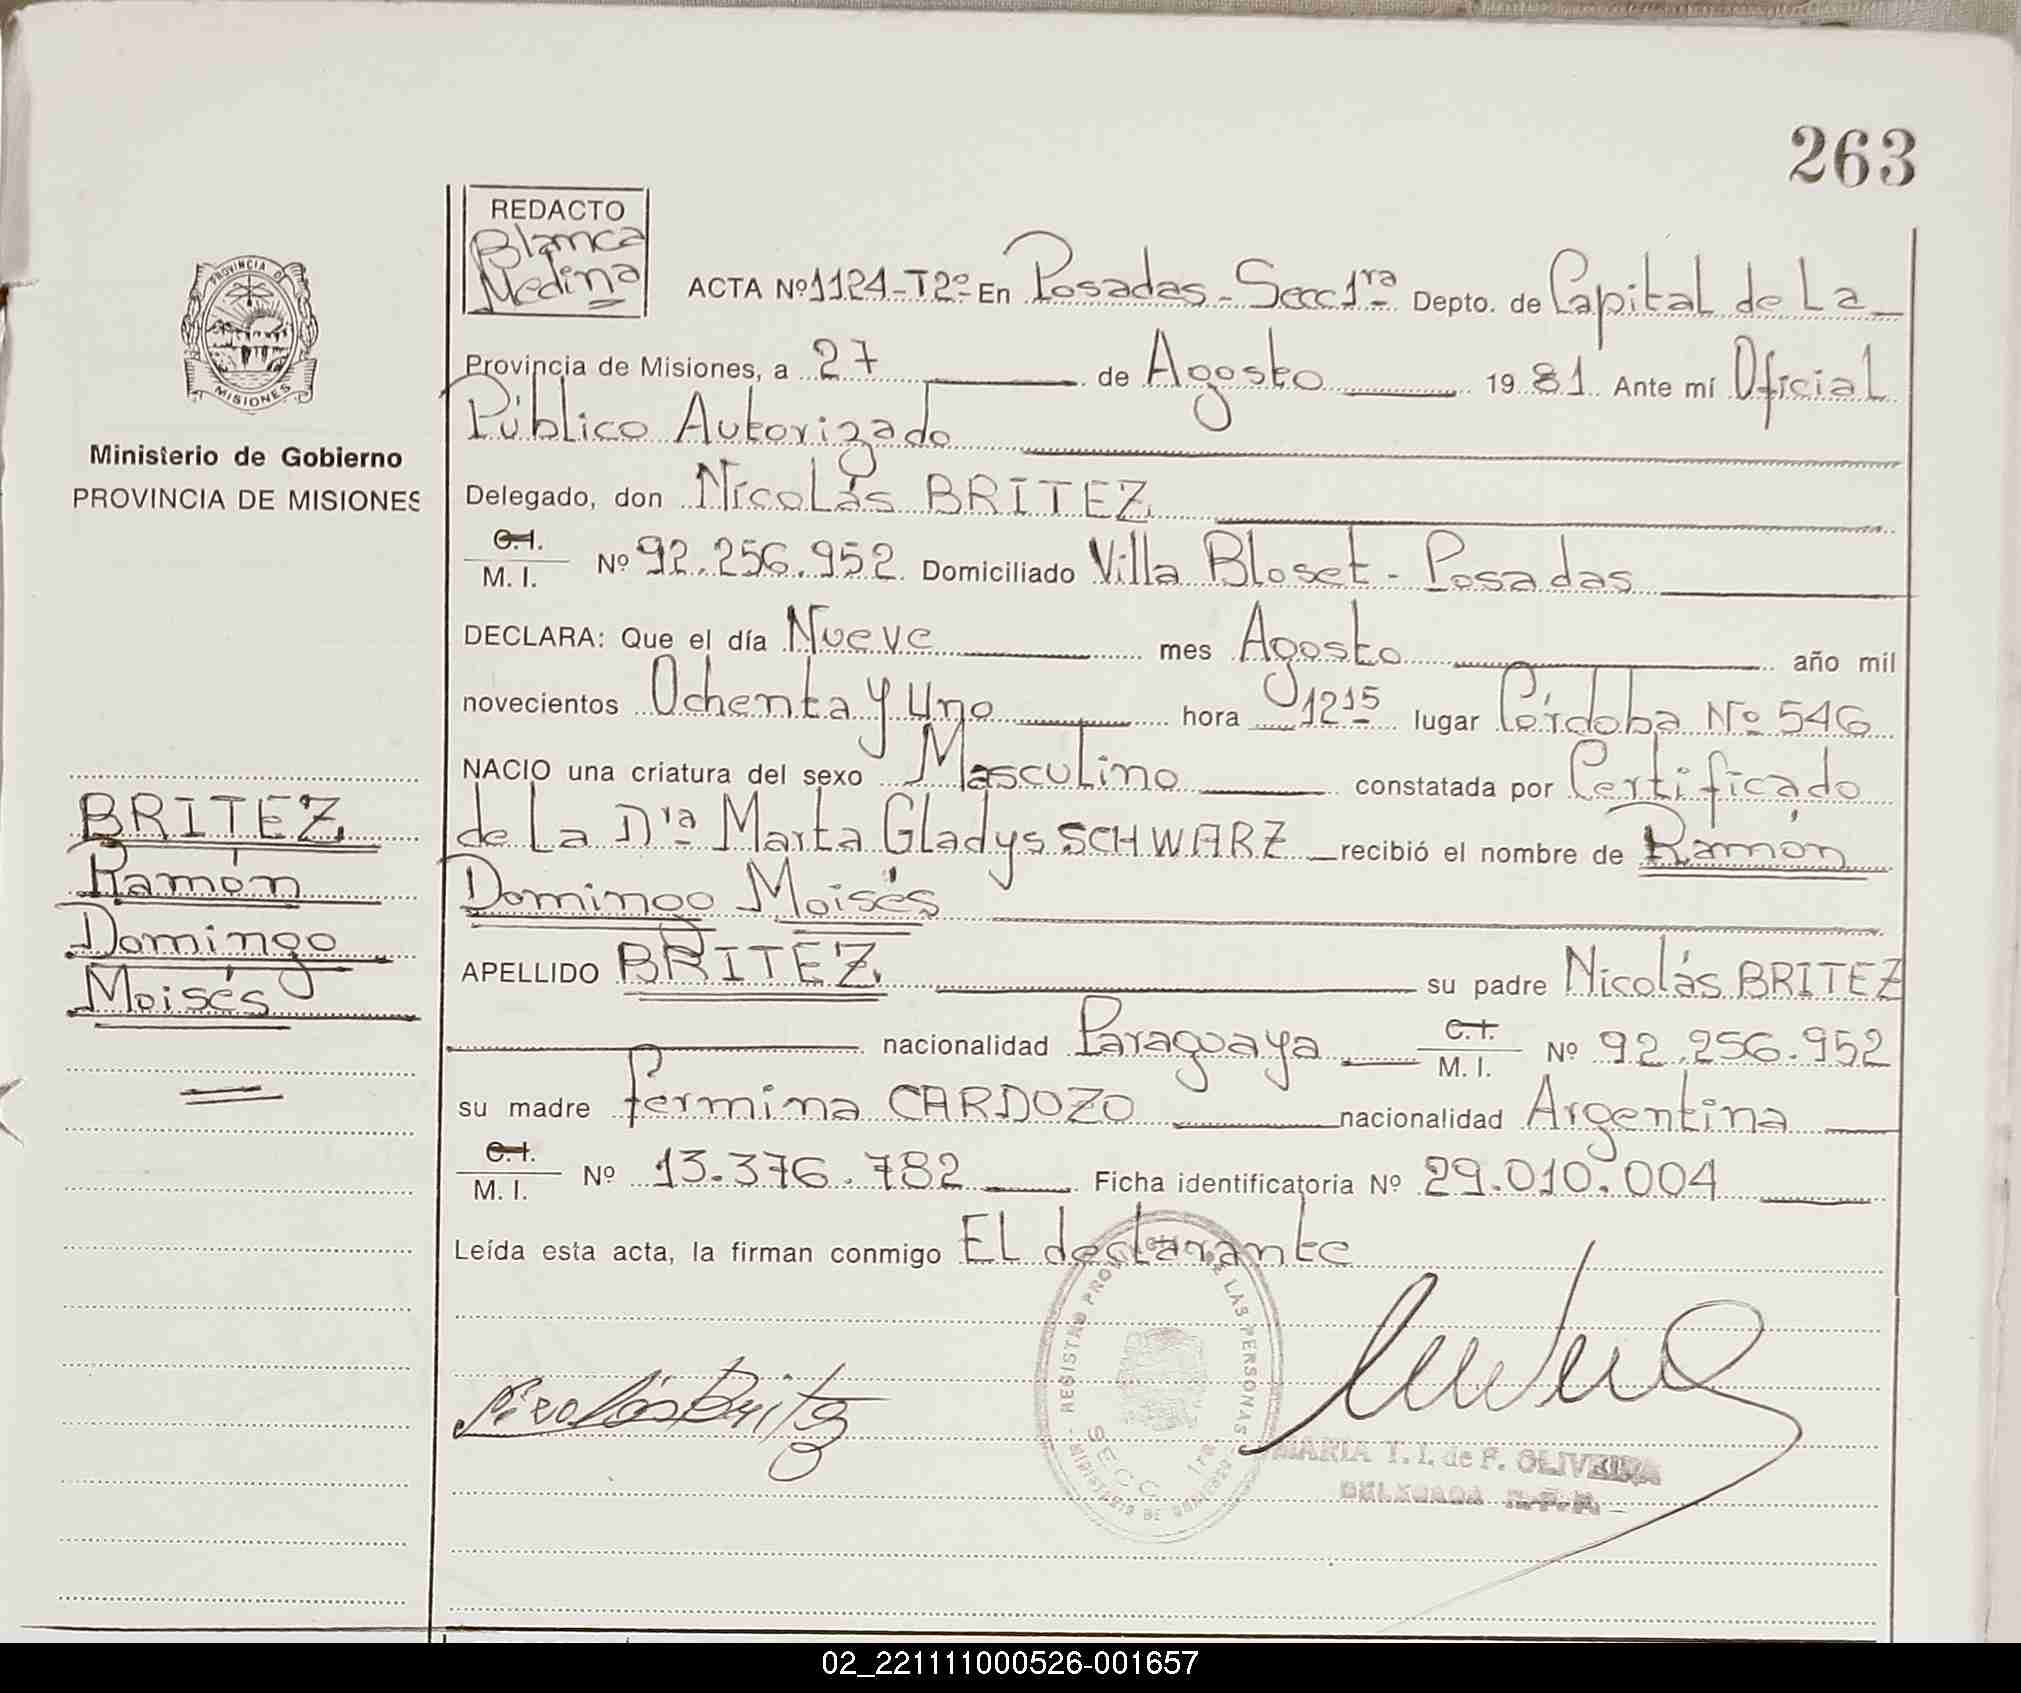 263
REDACTO
Blanca
Medina
PROVINCIA DE
MISIONES
Ministerio de Gobierno
PROVINCIA DE MISIONES
ACTA Nº 1124-T2º En Posadas-Secc 1ra Depto. de Capital de La
Provincia de Misiones, a 27 de Agosto 19 81 Ante mí Oficial
Público Autorizado
Delegado, don Nicolás BRITEZ
C.I.
M. I. Nº 92.256.952 Domiciliado Villa Bloset - Posadas
DECLARA: Que el día Nueve mes Agosto año mil
novecientos Ochenta y Uno hora 12 15 lugar Córdoba Nº 546
NACIO una criatura del sexo Masculino constatada por Certificado
de La Dra Marta Gladys SCHWARZ recibió el nombre de Ramón
Domingo Moisés
APELLIDO BRITEZ su padre Nicolás BRITEZ
nacionalidad Paraguaya C.I. M. I. Nº 92.256.952
su madre Fermina CARDOZO nacionalidad Argentina
C.I.
M. I. Nº 13.376.782 Ficha identificatoria Nº 29.010.004
Leída esta acta, la firman conmigo EL declarante
BRITEZ
Ramón
Domingo
Moisés
Nicolás Britez
REGISTRO DE LAS PERSONAS
MINISTERIO DE GOBIERNO
SECC 1ra
MARIA T. I. de F. OLIVEIRA
DELEGADA R.P.P.
02_221111000526-001657